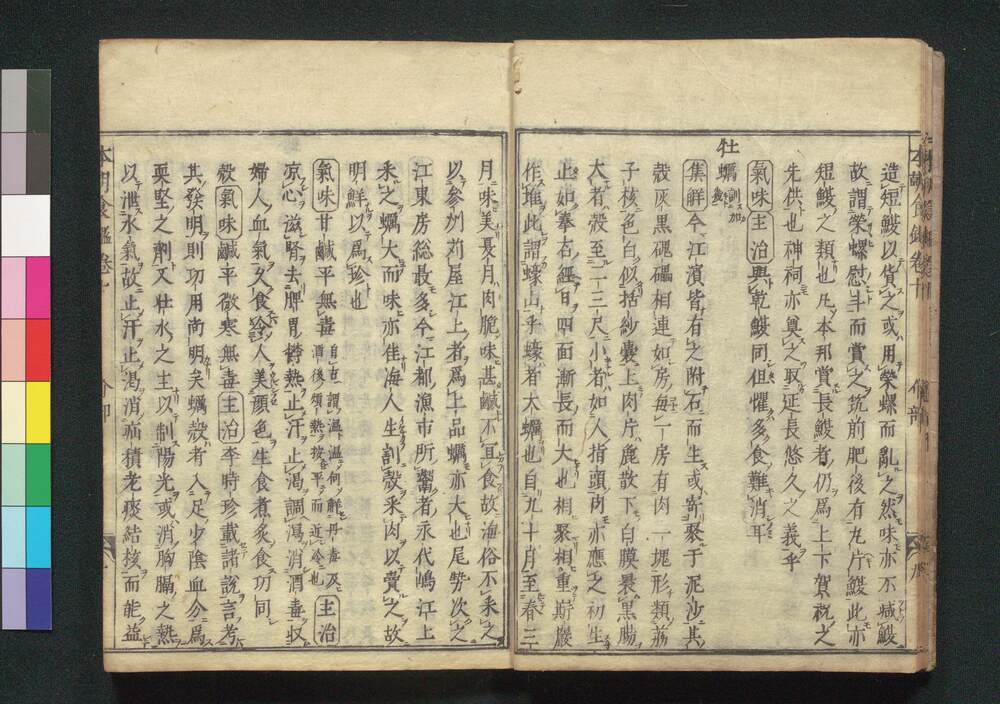 造短鰒以貨之或用榮螺而亂之然味亦不堪鰒
故謂榮螺慰斗而賞之筑前肥後有丸片鰒此亦
短鰒之類也凡本邦賞長鰒者仍爲上下賀祝之
先供也神祠亦奠之取延長悠久之義乎
氣味主治與乾鰒同但懼多食難消耳
牡蠣訓加幾
集鮮今江濱皆有之附石而生或寄聚于泥沙其
殼灰黒磈礧相連如房毎一房有肉一塊形類荔
子核色白似括紗囊上肉片麁散下白膜裹黒腸
大者殼至二三尺小者如人指頭肉亦應之初生
止如拳石經曰四面漸長而大也相聚相重嶄巖
作堆此謂蠔山乎蠔者大蠣也自九十月至春三
月味美夏月肉脆味甚鹹不宜食故海俗不采之
以參州苅屋江上者爲上品蠣亦大也尾勢次之
江東房総最多今江都漁市所鬻者永代嶋江上
采之蠣大而味亦佳海人生割殼采肉以賣之故
明鮮以爲珍也
氣味甘鹹平無毒自古謂温温何解丹毒及酒後煩熱按平而近冷也主治
凉心滋腎去脾胃欝熱止汗止渴調瀉消酒毒収
婦人血氣久食令人美顔色生食煮炙食功同
殼氣味鹹平微寒無毒主治李時珍載諸説言考
其發明則功用尚明矣蠣殼者入足少陰血分爲
耎堅之劑又壮水之主以制陽光或消胸膈之熱
以泄水氣故止汗止渴消疝積老痰結核而能益
本朝食鑑卷十
介部